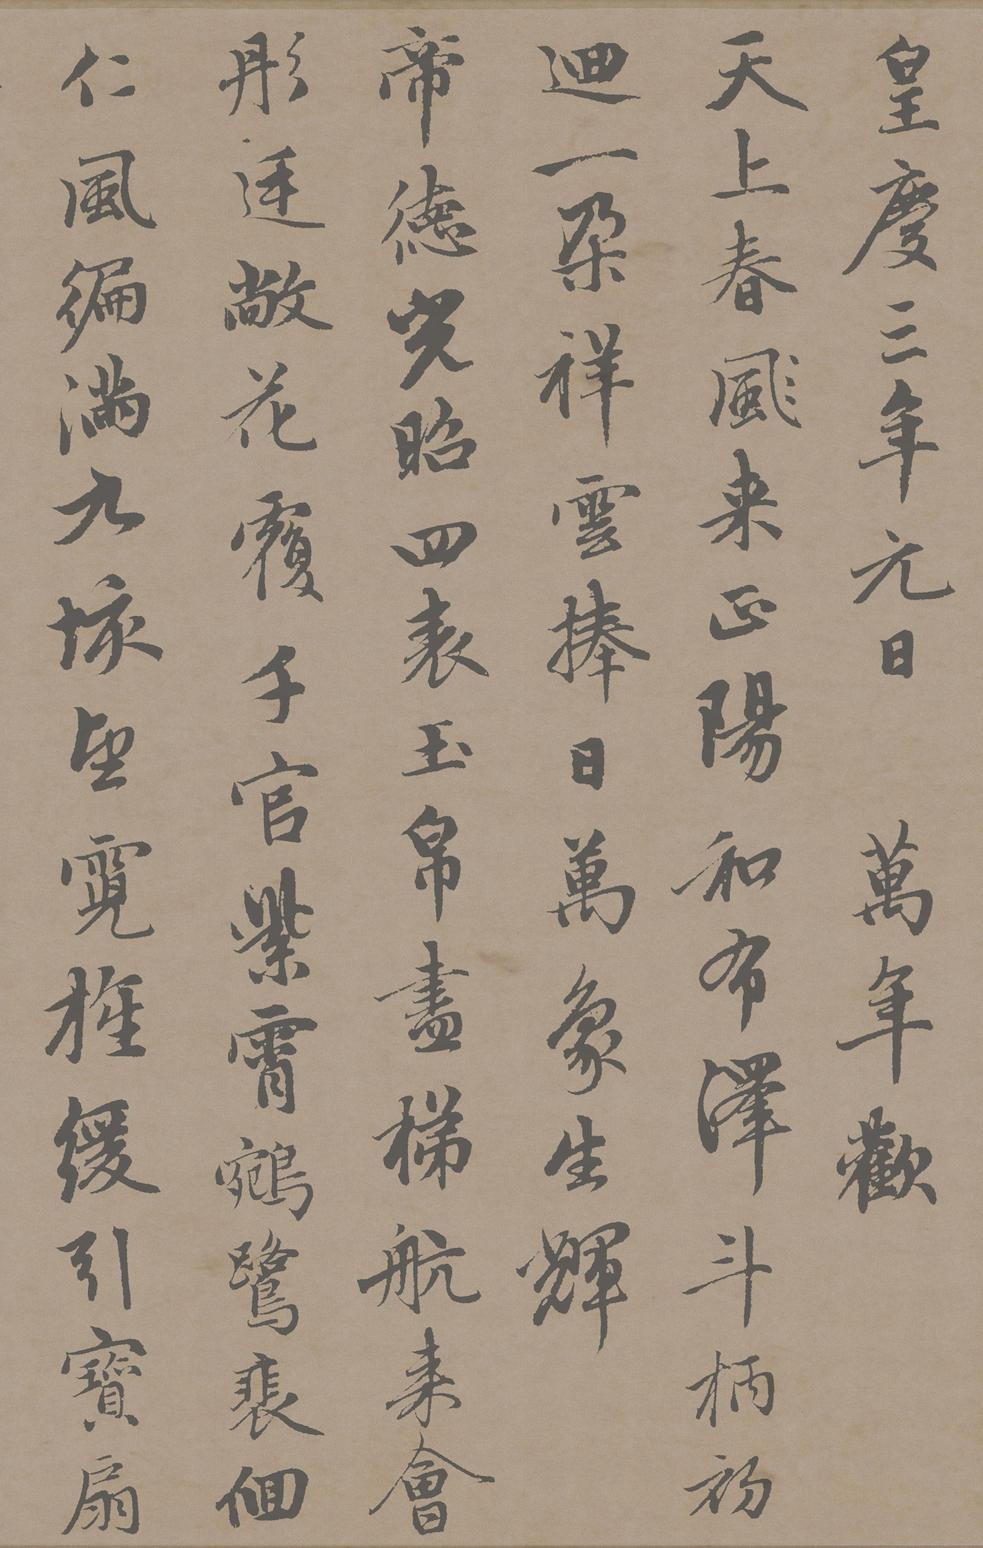 皇慶三年元日　萬年歡
天上春颷来正陽和布澤斗柄初
迴一朶祥雲捧日萬象生輝
帝德光昭四表玉帛盡梯航来會
彤廷敞花覆千官紫霄鵷鷺裴佪
仁風徧満九垓望霓旌緩引寶扇